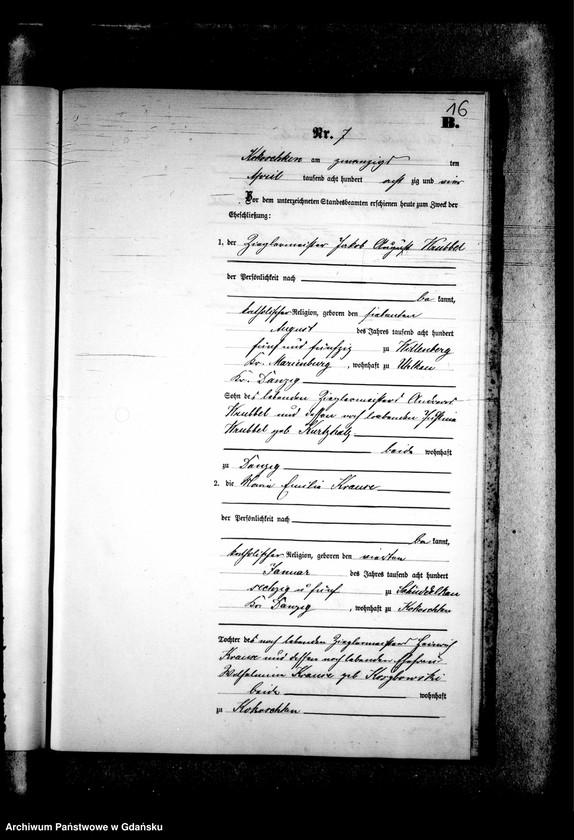 16
B.
Nr. 7
Kokoschken am zwanzigst ten
April tausend acht hundert acht zig und vier
Vor dem unterzeichneten Standesbeamten erschienen heute zum Zweck der
Eheschließung:
1. der Zieglermeister Jakob August
der Persönlichkeit nach
be kannt,
katholischer Religion, geboren den siebenten
August des Jahres tausend acht hundert
fünf und fünfzig zu Willenberg
Kr. Marienburg, wohnhaft zu
Kr. Danzig
Sohn des lebenden Zieglermeisters
und dessen noch lebenden
geb.
beide wohnhaft
zu Danzig
2. die Maria Emilie Krause
der Persönlichkeit nach
be kannt,
katholischer Religion, geboren den vierten
Januar des Jahres tausend acht hundert
sechzig u fünf zu Schüddelkau
Kr. Danzig, wohnhaft zu Kokoschken
Tochter des noch lebenden Zieglermeisters Heinrich
Krause und dessen noch lebenden Ehefrau
Wilhelmine Krause geb
beide wohnhaft
zu Kokoschken
Archiwum Państwowe w Gdańsku